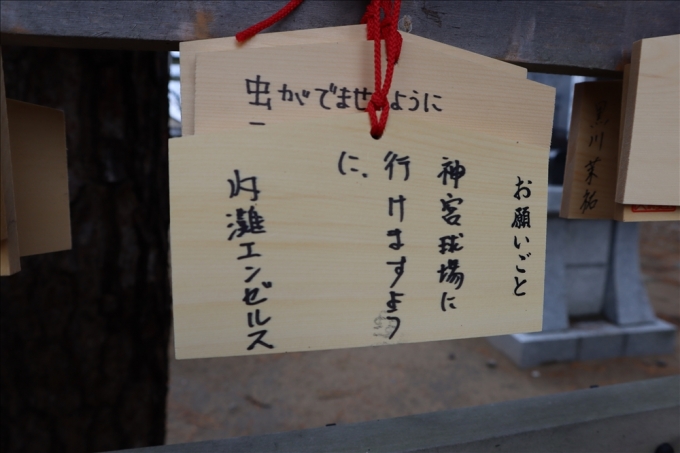 虫がでませんように
お願いごと
神宮球場に
行けますよう
に。
灯灘エンゼルス